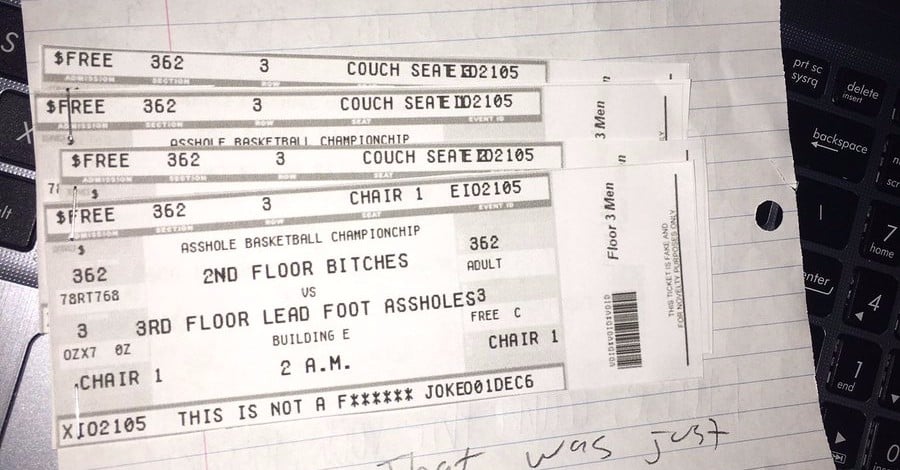 $FREE 362 3 COUCH SEAT
ADMISSION SECTION ROW SEAT EVENT ID
$FREE 362 3 COUCH SEAT
ADMISSION SECTION ROW SEAT EVENT ID
ASSHOLE BASKETBALL CHAMPIONCHIP
3 Men
$FREE 362 3 COUCH SEAT
ADMISSION SECTION ROW SEAT
$
$FREE 362 3 CHAIR 1 EIO2105
SECTION ROW SEAT EVENT ID
$
ASSHOLE BASKETBALL CHAMPIONCHIP
362
362
2ND FLOOR BITCHES
ADULT
78RT768
VS
3
3RD FLOOR LEAD FOOT ASSHOLES
3
FREE C
OZX7 0Z
BUILDING E
CHAIR 1
CHAIR 1
2 A.M.
XIO2105 THIS IS NOT A F****** JOKE001DEC6
Floor 3 Men
VOID!VOID!VOID
THIS TICKET IS FAKE AND
FOR NOVELTY PURPOSES ONLY
That was just
S
X
alt
prt sc
sysrq
delete
insert
backspace
\
enter
7
home
4
1
end
0